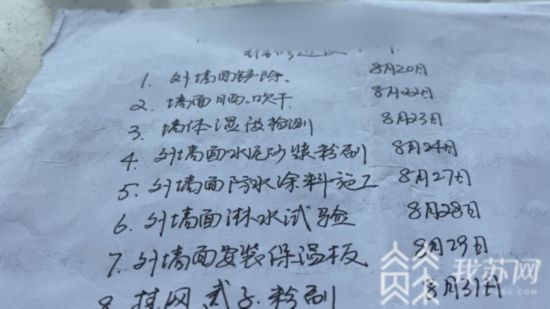 1. 外墙面铲除. 8月20日
2. 墙面晒.吹干 8月22日
3 墙体湿度检测 8月23日
4. 外墙面水泥砂浆粉刷 8月24日
5. 外墙面防水涂料施工 8月27日
6. 外墙面淋水试验 8月28日
7. 外墙面安装保温板 8月29日
8 挂网 粉刷 8月31日
我苏网